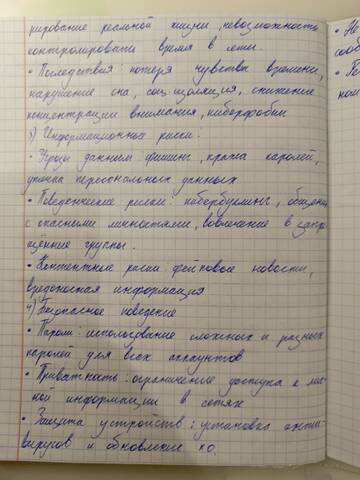 рирование реальной жизни, невозможность
контролировати время в сети.
• Последствия: потеря чувства времени,
нарушение сна, соц.изоляция, снижение
концентрации внимания, киберфобии
3) Информационные риски:
• Угрозы данным фишинг, кража паролей,
утечка персональных данных
• Поведенческие риски: кибербуллинг, общение
с опасными личностями, вовлечение в запре-
щенные группы.
• Контентные риски фейковые новости,
вредоносная информация
4) Безопасное поведение
• Пароли: использование сложных и разных
паролей для всех аккаунтов
• Приватность: ограничение доступа к лич-
ной информации в сетях
• Защита устройств: установка анти-
вирусов и обновление ПО.
сооб